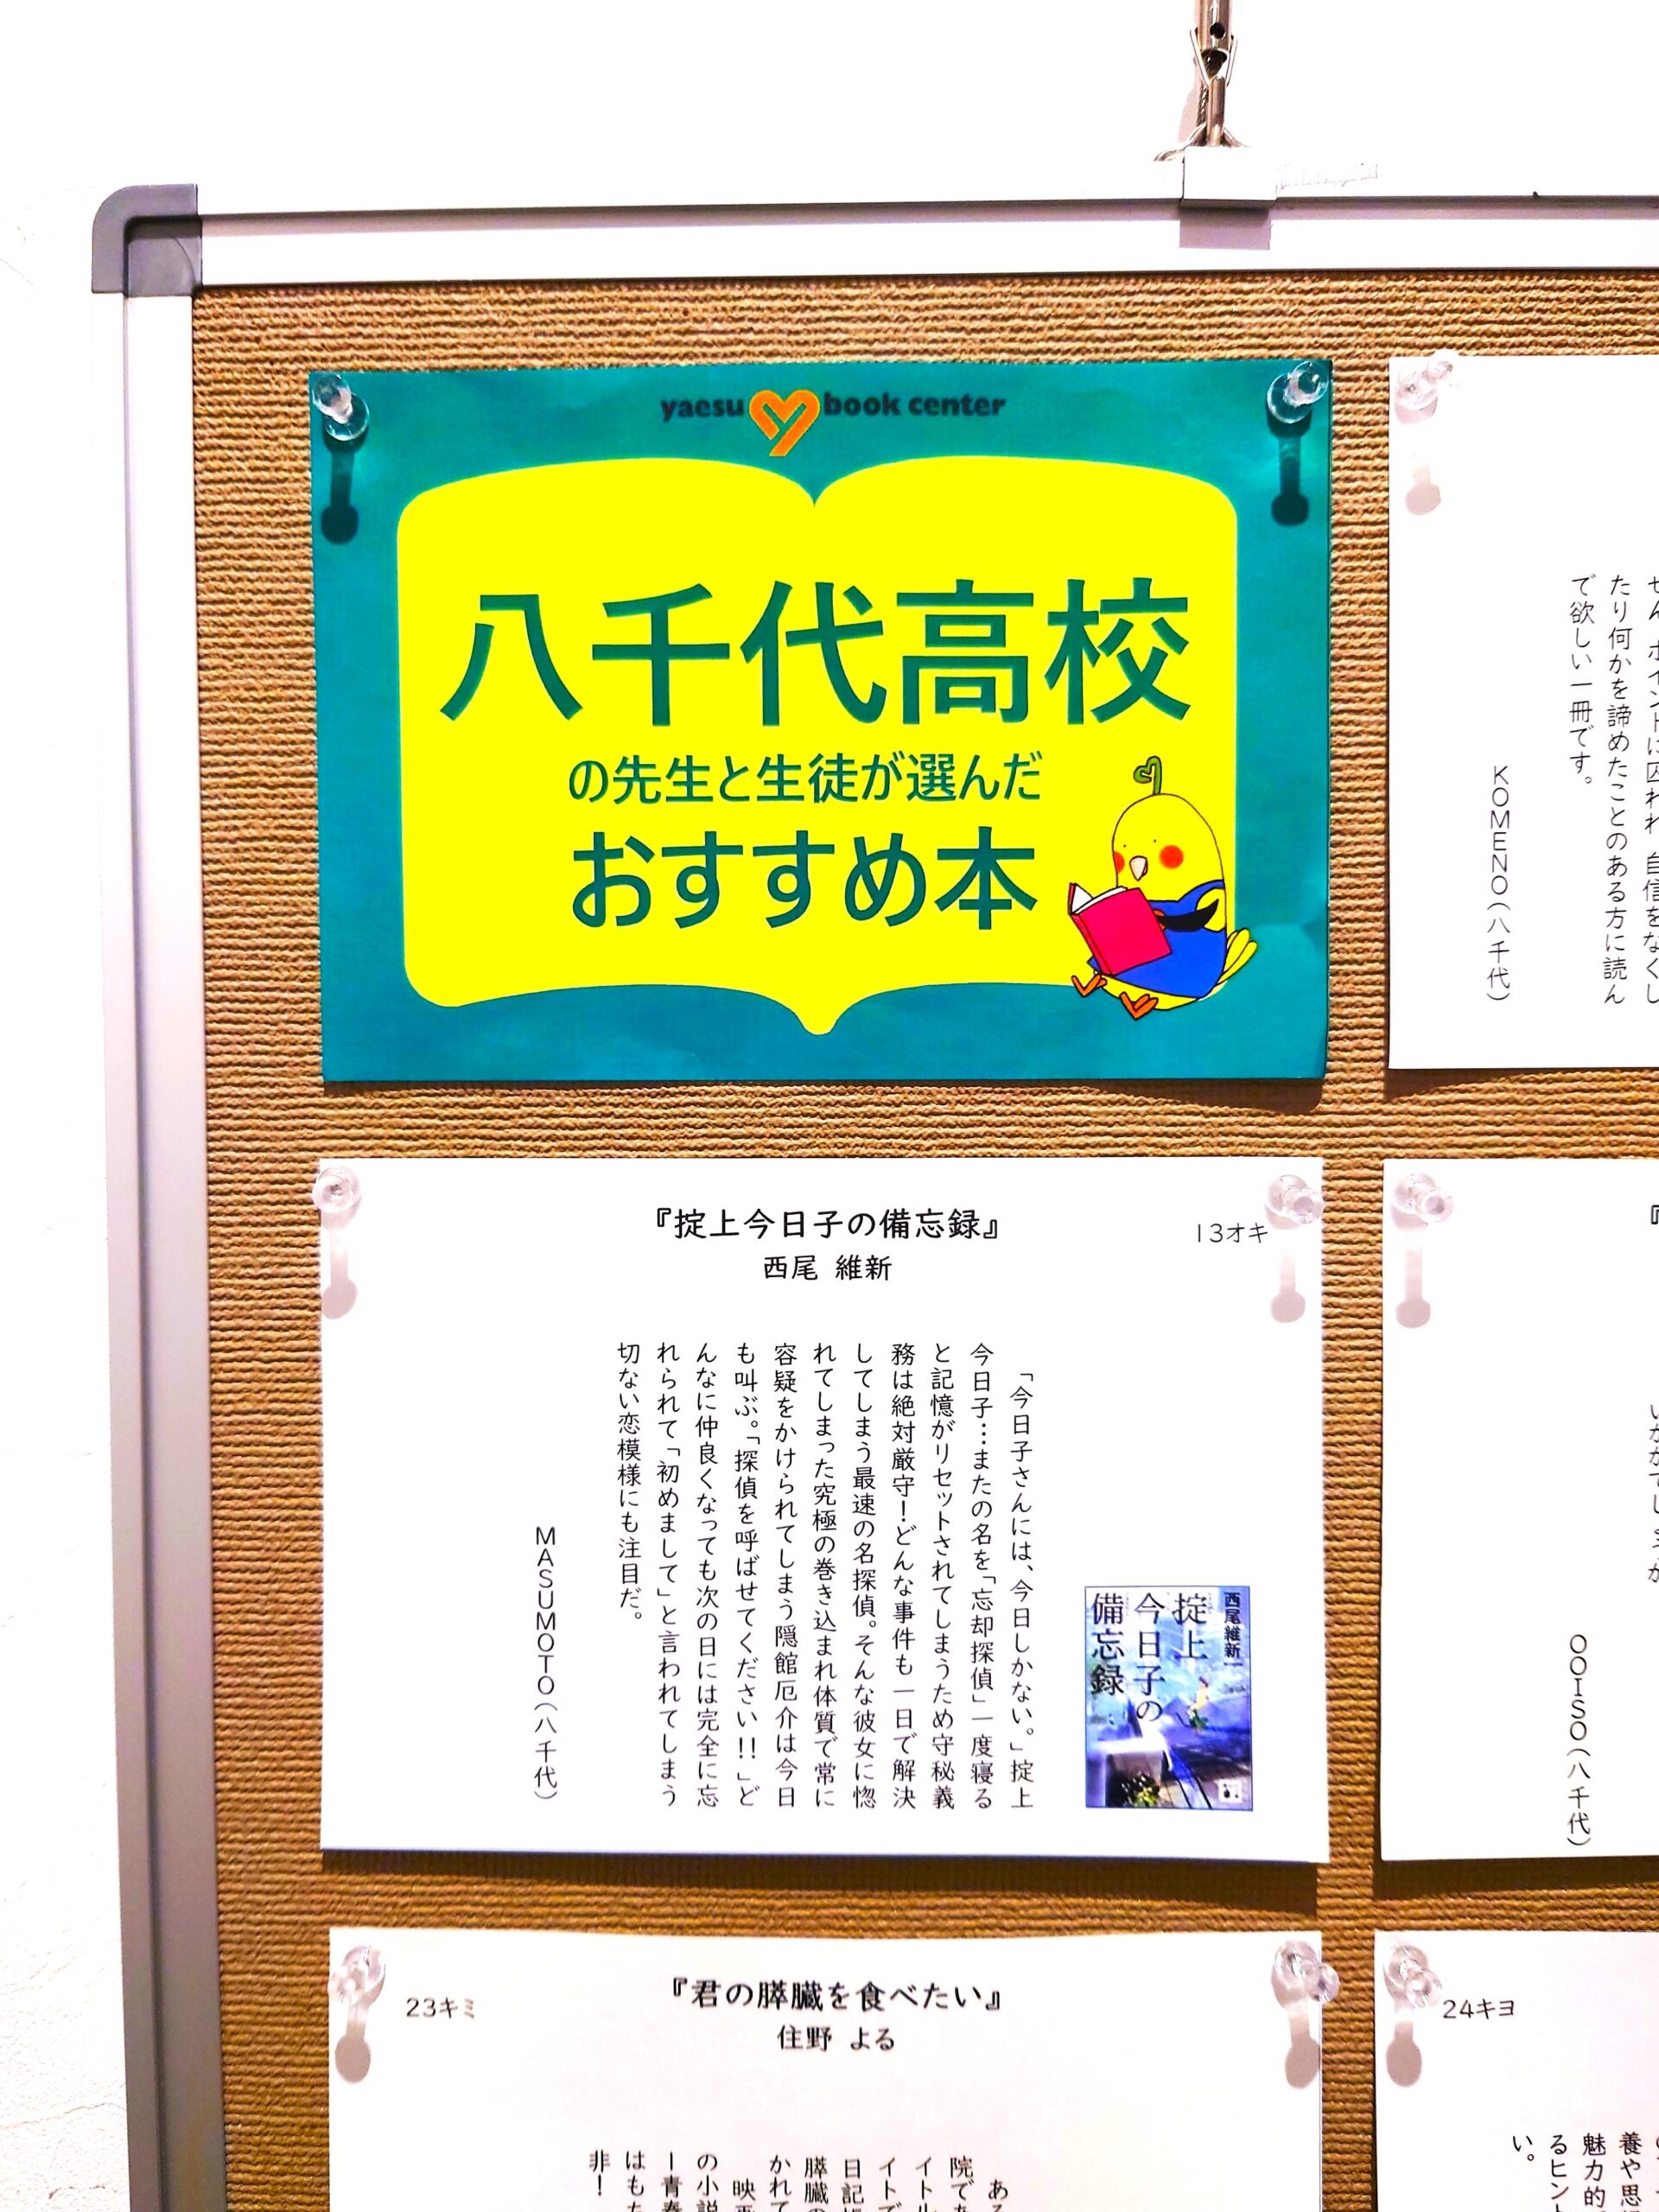 yaesu book center
八千代高校
の先生と生徒が選んだ
おすすめ本
たり何かを諦めたことのある方に読ん
で欲しい一冊です。
KOMENO(八千代)
『掟上今日子の備忘録』
西尾 維新
13オキ
「今日子さんには、今日しかない。」掟上
今日子…またの名を「忘却探偵」一度寝る
と記憶がリセットされてしまうため守秘義
務は絶対厳守!どんな事件も一日で解決
してしまう最速の名探偵。そんな彼女に惚
れてしまった究極の巻き込まれ体質で常に
容疑をかけられてしまう隠館厄介は今日
も叫ぶ。「探偵を呼ばせてください!!」ど
んなに仲良くなっても次の日には完全に忘
れられて「初めまして」と言われてしまう
切ない恋模様にも注目だ。
MASUMOTO(八千代)
西尾維新
掟上
今日子の
備忘録
OOISO(八千代)
23キミ
『君の膵臓を食べたい』
住野 よる
ある
院であ
イトル
イトで
日記帳
膵臓の
かれて
映画
の小説
ー青春
はもち
非!
24キヨ
養や思
魅力的
るヒント
い。